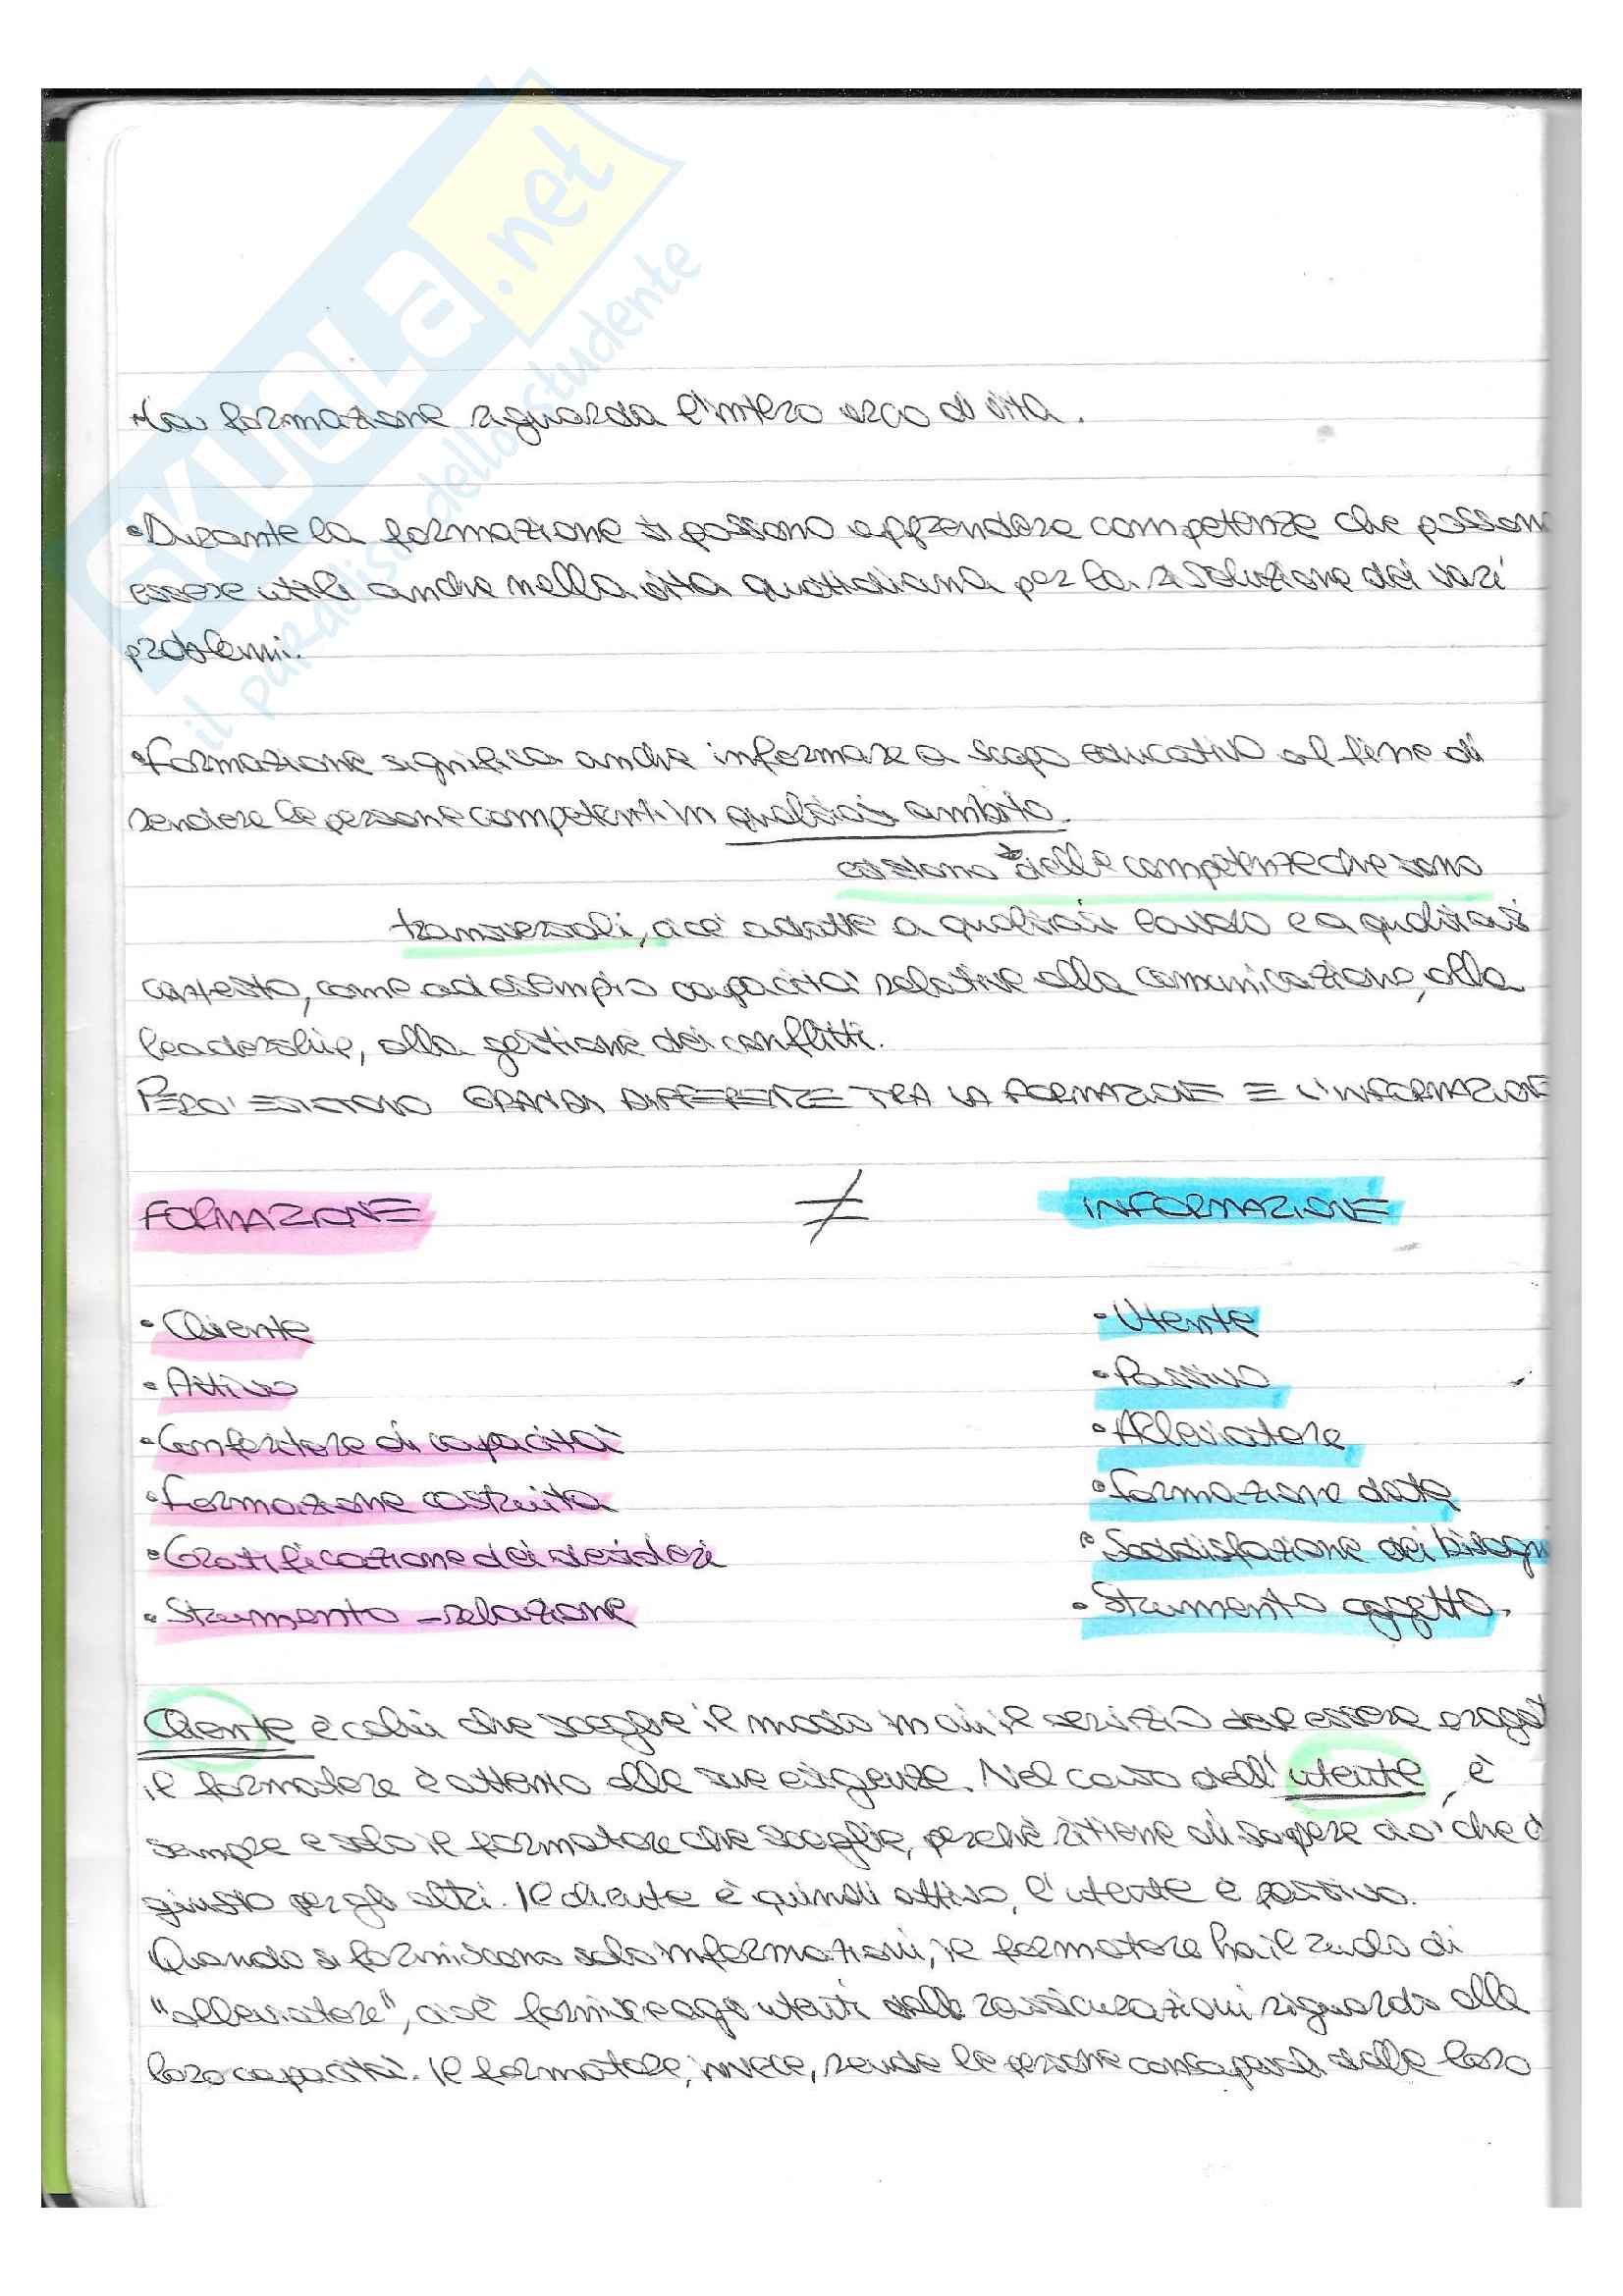 SKUOLA.net
il paradiso dello studente
La formazione riguarda l'intero arco di vita.
•Durante la formazione si possono apprendere competenze che posson
essere utili anche nella vita quotidiana per la risoluzione dei vari
problemi.
•Formazione significa anche informare a scopo educativo al fine di
rendere le persone competenti in qualsiasi ambito.
esistono delle competenze che sono
transversali, cioè adatte a qualsiasi lavoro e a qualsiasi
contesto, come ad esempio capacità relative alla comunicazione, alla
leadership, alla gestione dei conflitti.
PERO' ESISTONO GRANDI DIFFERENZE TRA LA FORMAZIONE E L'INFORMAZIONE
FORMAZIONE ≠ INFORMAZIONE
•Cliente •Utente
•Attivo •Passivo
•Conferitore di capacità •Alleviatore
•Formazione costruita •Formazione data
•Gratificazione dei desideri •Soddisfazione dei bisogni
•Strumento - relazione •Strumento oggetto.
Cliente è colui che sceglie il modo in cui il servizio deve essere erogat
il formatore è attento alle sue esigenze. Nel caso dell'utente, è
sempre e solo il formatore che sceglie, perché ritiene di sapere ciò che è
giusto per gli altri. Il cliente è quindi attivo, l'utente è passivo.
Quando si forniscono solo informazioni, il formatore ha il ruolo di
"alleviatore", cioè fornisce agli utenti delle rassicurazioni riguardo alla
loro capacità. Il formatore, invece, rende le persone consapevoli delle loro